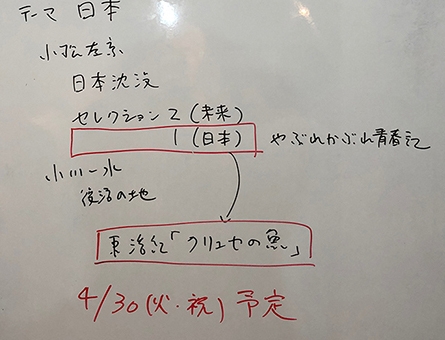 テーマ 日本
小松左京
日本沈没
セレクション2(未来)
1(日本) やぶれかぶれ青春記
小川一水
復活の地
東浩紀「クリュセの魚」
4/30(火・祝)予定